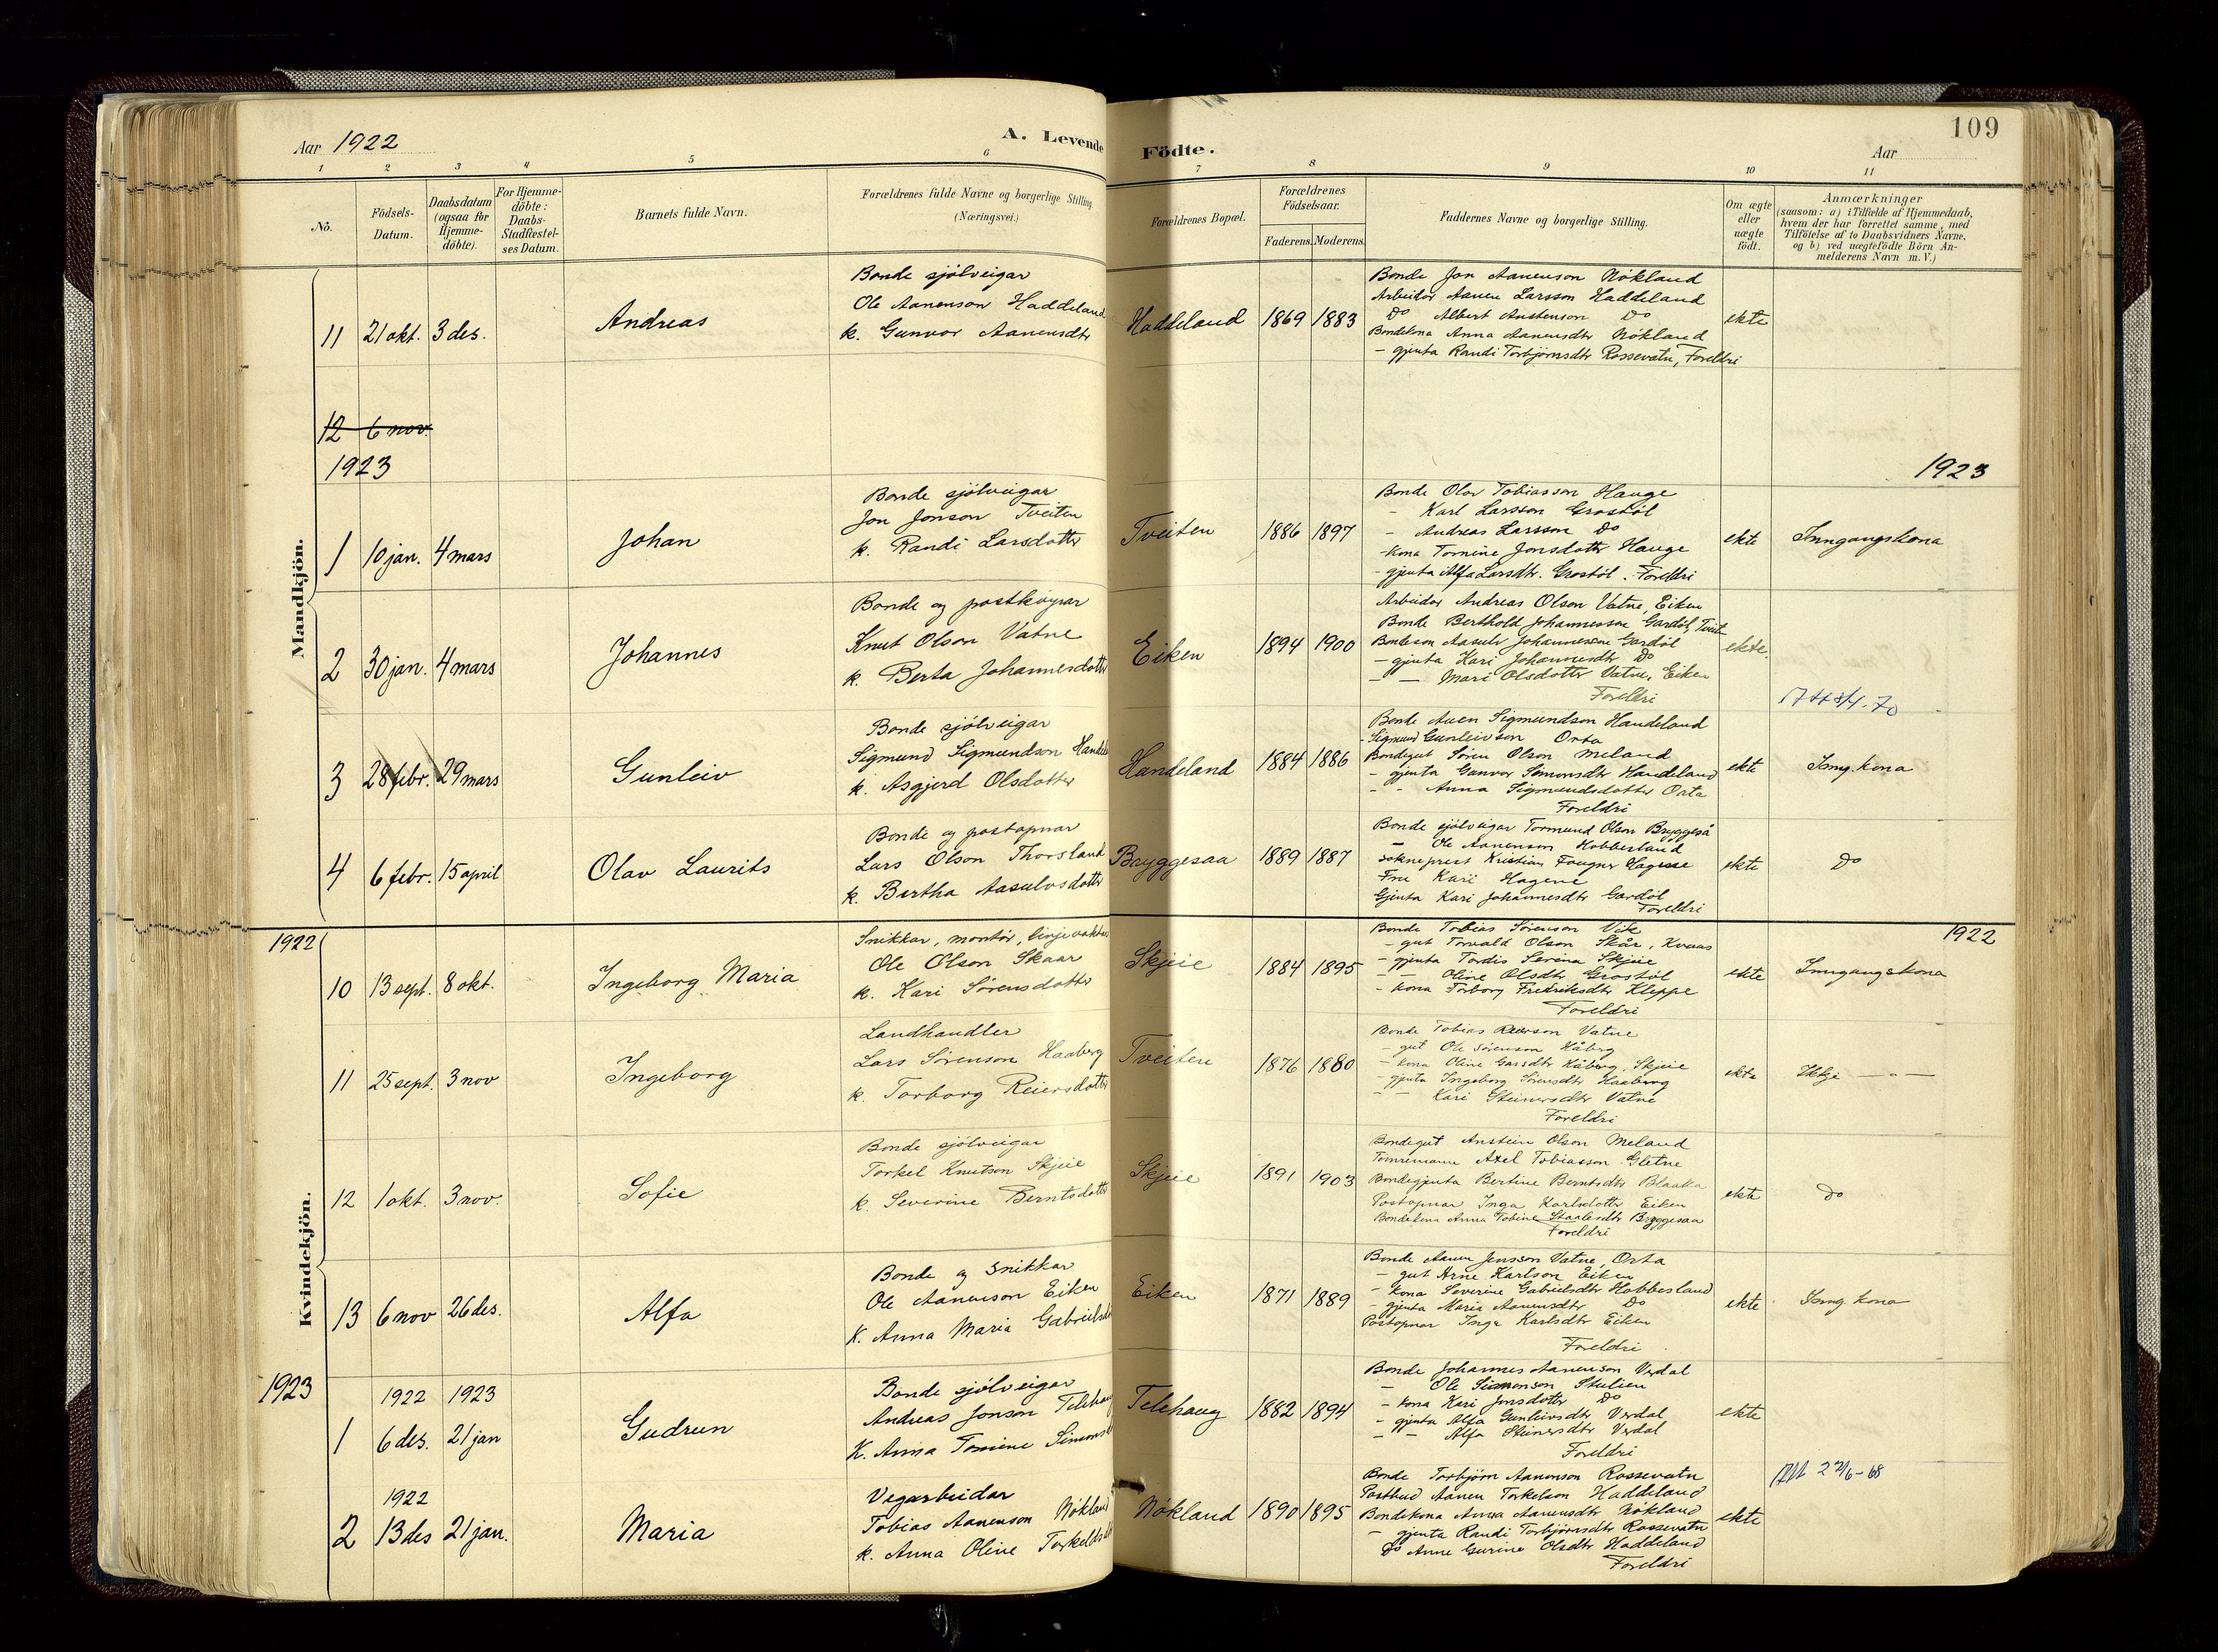 109
Aar 1922
A. Levende Födte.
Aar
1 2 3 4 5 6 7 8 9 10 11
No.
Födsels-Datum.
Daabsdatum (ogsaa for Hjemme-döbte).
For Hjemme-döbte: Daabs-Stadfæstel-ses Datum.
Barnets fulde Navn.
Forældrenes fulde Navne og borgerlige Stilling
(Næringsvei.)
Forældrenes Bopæl.
Forældrenes Födselsaar.
Faderens. Moderens.
Faddernes Navne og borgerlige Stilling.
Om ægte eller uægte födt.
Anmærkninger
(saasom: a) i Tilfælde af Hjemmedaab,
hvem der har forrettet samme, med
Tilföielse af to Daabsvidners Navne,
og b) ved uægtefödte Börn An-
melderens Navn m. V.)
Mandkjön.
11 21 okt. 3 des.
Andreas
Bonde sjölveigar
Ole Aanenson Haddeland
k. Gunvor Aanensdtr
Haddeland 1869 1883
Bonde Jon Aanenson Nökland
Arbeidar Aanen Larsson Haddeland
Do Albert Austenson Do
Bondekona Anna Aanensdtr Nökland
- gjenta Randi Torbjörnsdtr Rossevatn, Foreldri
ekte
12 6 nov.
1923
1923
1 10 jan. 4 mars
Johan
Bonde sjölveigar
Jon Jonson Tveiten
k. Randi Larsdotter
Tveiten 1886 1897
Bonde Olav Tobiasson Hauge
- Karl Larsson Grostöl
- Andreas Larsson Do
- kona Tomine Jonsdotter Hauge
- gjenta Alfa Larsdtr. Grostöl. Foreldri
ekte
Inngangskona
2 30 jan. 4 mars
Johannes
Bonde og postköyrar
Knut Olson Vatne
k. Berta Johannesdotter
Eiken 1894 1900
Arbeidar Andreas Olson Vatne, Eiken
Bonde Berthold Johannesson Gardöl, Tveit
Bondeson Aasulv Johannesson Gardöl
- gjenta Kari Johannesdtr Do
- - Mari Olsdotter Vatne, Eiken
Foreldri
ekte.
3 28 febr. 29 mars
Gunleiv
Bonde sjölveigar
Sigmund Sigmundson Handel
k. Asgjerd Olsdotter
Handeland 1884 1886
Bonde Aaen Sigmundson Handeland
- Sigmund Gunleivson Orta
Bondegut Sören Olson Meland
- gjenta Gunvor Simonsdtr Handeland
- - Anna Sigmundsdotter Orta
Foreldri
ekte
Inng. kona
4 6 febr. 15 april
Olav Laurits
Bonde og postopnar
Lars Olson Thorsland
k. Bertha Aasulvsdotter
Bryggesaa 1889 1887
Bonde sjölveigar Tormund Olson Bryggeså
- Ole Aanenson Hobbesland
Sokneprest Kristian Fougner Hagene
Fru Kari Hagene
Gjenta Kari Johannesdtr Gardöl
Foreldri
ekte
Do
Kvindekjön.
1922
1922
10 13 sept. 8 okt.
Ingeborg Maria
Snikkar, montör, linjevakter
Ole Olson Skaar
k. Kari Sörensdotter
Skjeie 1884 1895
Bonde Tobias Sörenson Vik
- gut Torvald Olson Skår, Kvaas
- gjenta Tordis Serina Skjeie
- - Oline Olsdtr Grostöl
- kona Torborg Fredriksdtr Kleppe
Foreldri
ekte
Inngangskona
11 25 sept. 3 nov
Ingeborg
Landhandler
Lars Sörenson Haaberg
k. Torborg Reiersdotter
Tveiten 1876 1880
Bonde Tobias Reierson Vatne
- gut Ole Sörenson Håberg
- kona Oline Larsdtr Håberg, Skjeie
- gjenta Ingeborg Sörensdtr Haaberg
- - Kari Steinersdtr Vatne
Foreldri
ekte
Ikkje — " —
12 1 okt. 3 nov.
Sofie
Bonde sjölveigar
Torkel Knutson Skjeie
k. Severine Berntsdotter
Skjeie 1891 1903
Bondegut Anstein Olson Meland
Tömremann Axel Tobiasson Gletne
Bondegjenta Bertine Berntsdtr Blaaka
Postopnar Inga Karlsdotter Eiken
Bondekona Anna Tobine Staalesdtr Bryggesaa
Foreldri
ekte
Do
13 6 nov 26 des.
Alfa
Bonde og snikkar
Ole Aanenson Eiken
K. Anna Maria Gabrielsdtr
Eiken 1871 1889
Bonde Aanen Jensson Vatne, Orta
- gut Arne Karlson Eiken
- kona Severine Gabrielsdtr Hobbesland
- gjenta Maria Aanensdtr Do
Postopnar Inga Karlsdtr Eiken
Foreldri
ekte
Inng. kona
1923
1922 1923
1 6 des. 21 jan
Gudrun
Bonde sjölveigar
Andreas Jonson Telehaug
K. Anna Tomine Simonsd
Telehaug 1882 1894
Bonde Johannes Aanenson Verdal
- Ole Simonson Stulien
- kona Kari Jonsdotter Do
- gjenta Alfa Gunleivsdtr Verdal
- - Alfa Steinersdtr Verdal
Foreldri
ekte
1922
2 13 des 21 jan.
Maria
Vegarbeidar
Tobias Aanenson Nökland
k. Anna Oline Torkeldsdtr
Nökland 1890 1895
Bonde Torbjörn Aanenson Rossevatn
Postbud Aanen Torkelson Haddeland
Bondekona Anna Aanensdtr Nökland
- gjenta Randi Torbjörnsdtr Rossevatn
Do Anne Gurine Olsdtr Haddeland
Foreldri
ekte